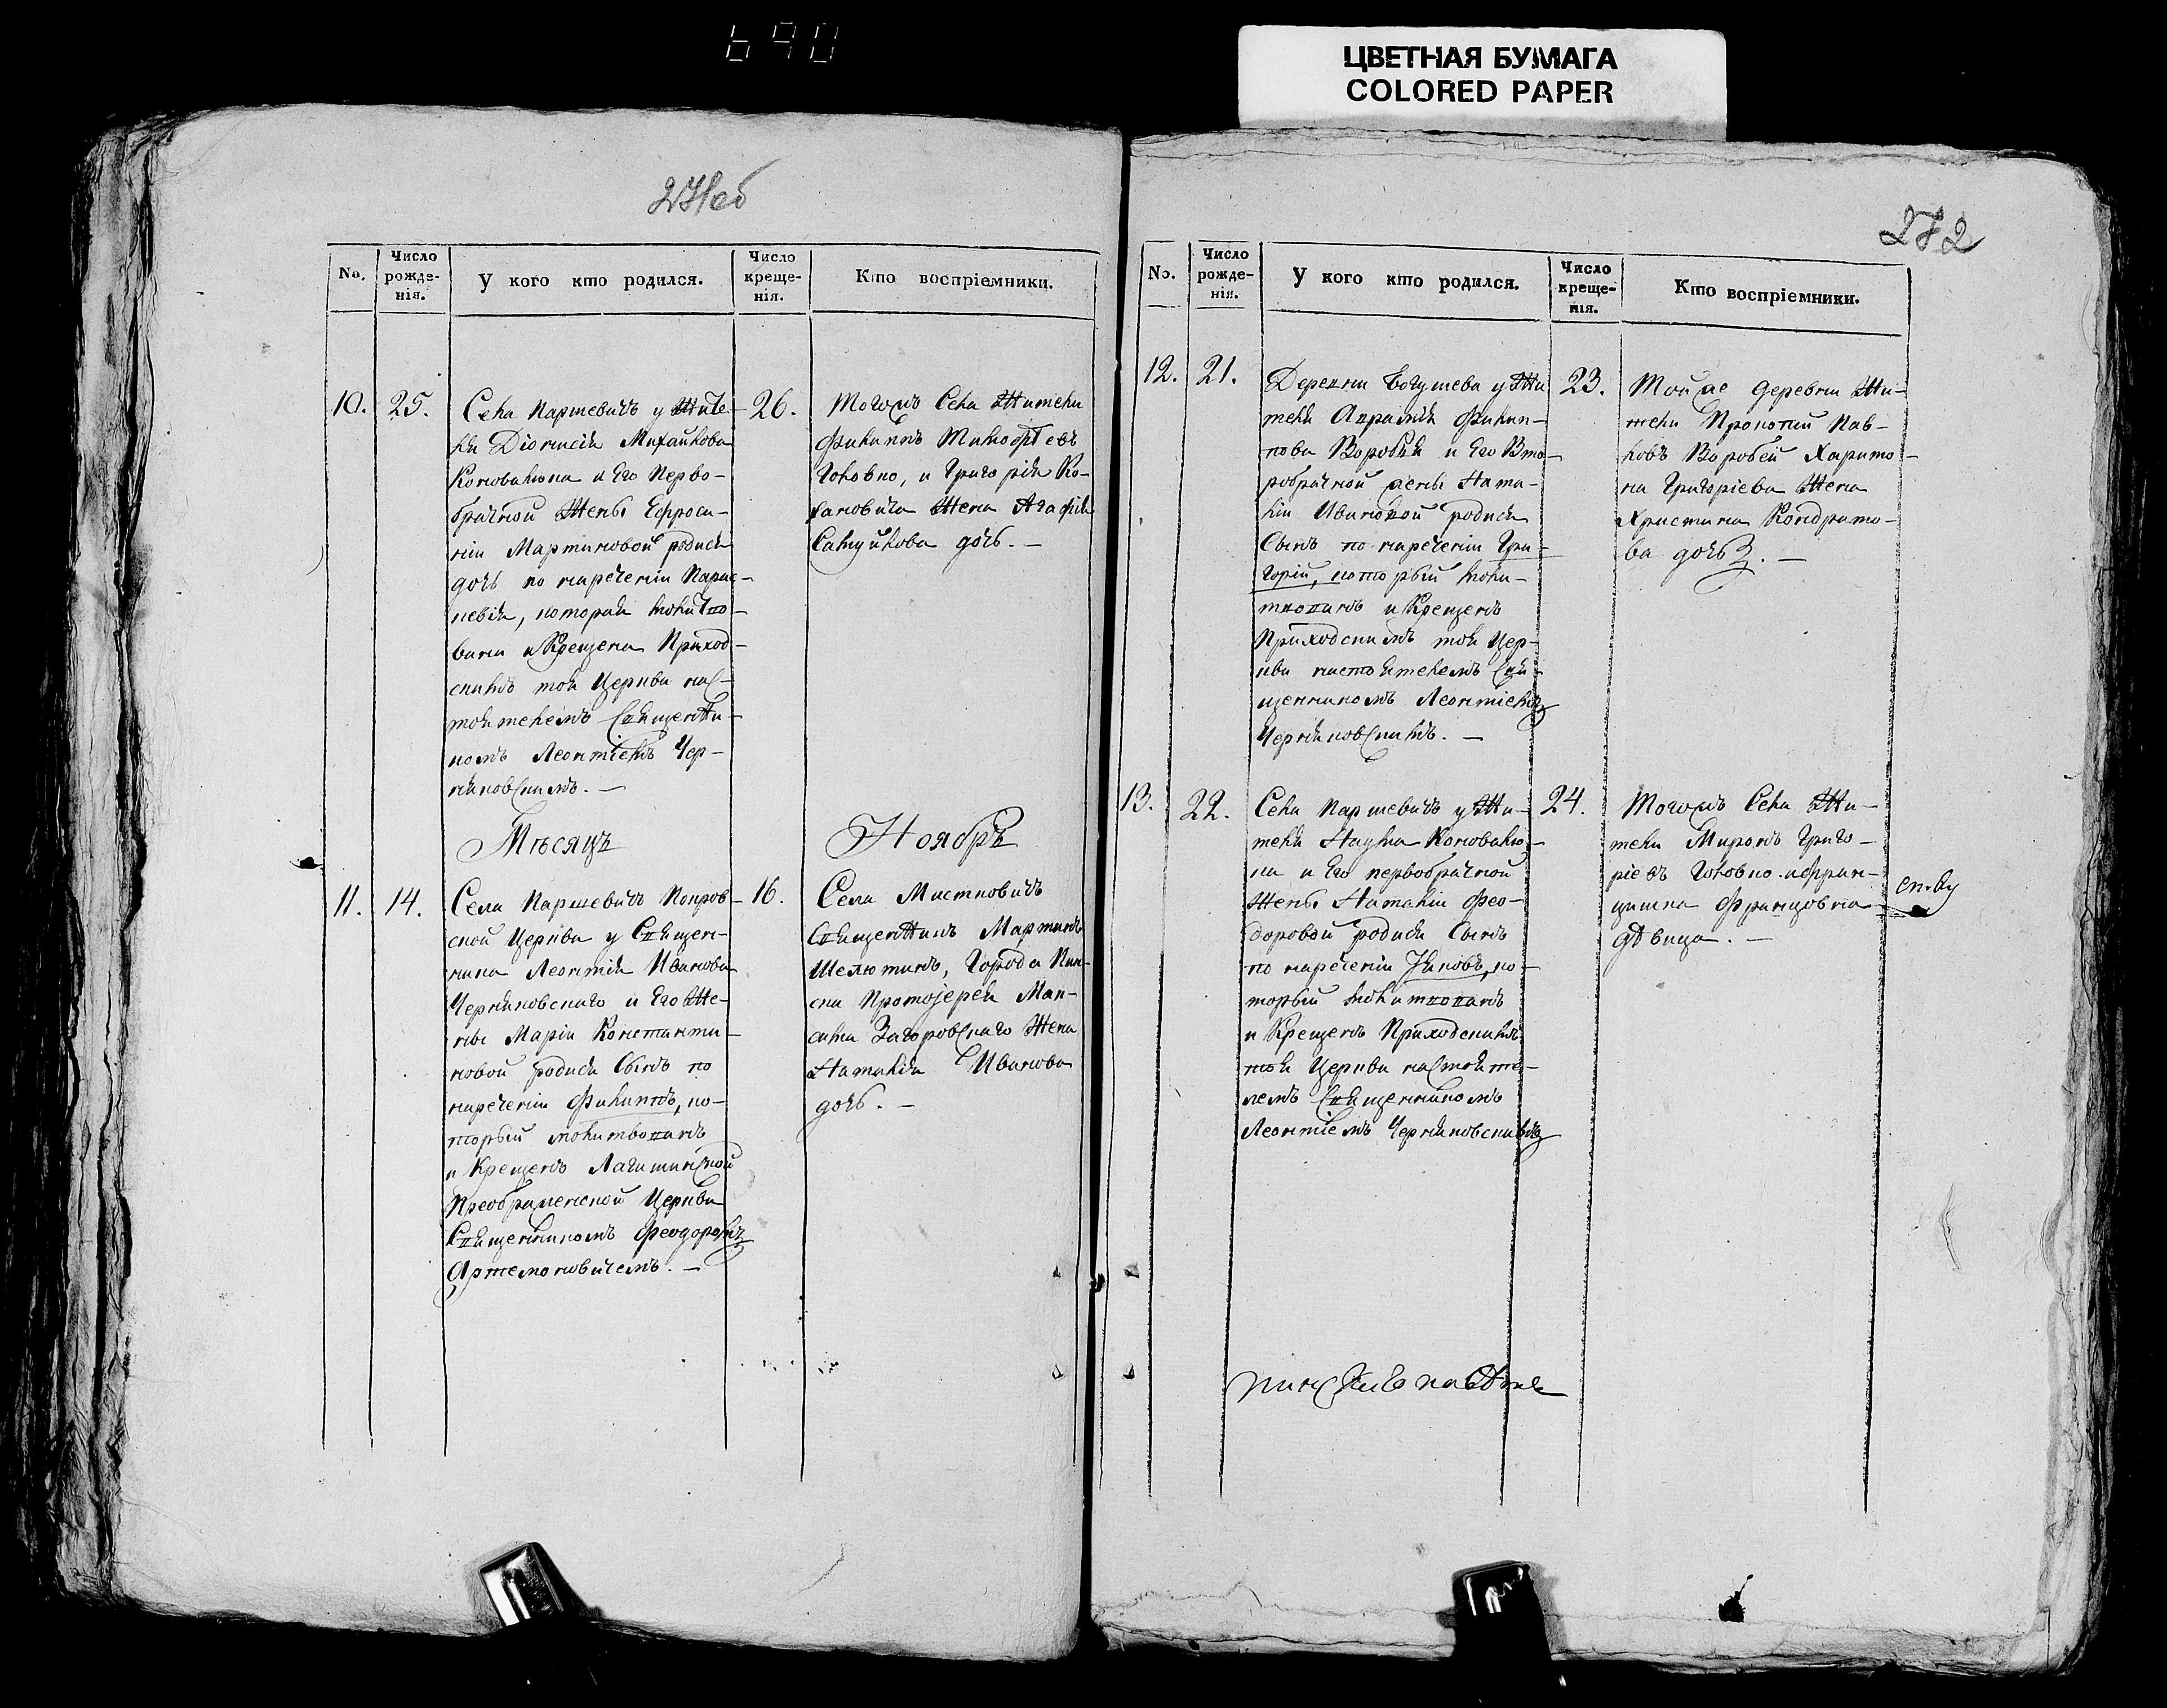 690
ЦВЕТНАЯ БУМАГА
COLORED PAPER
271об
No.
Число рожде-нія.
У кого кто родился.
Число креще-нія.
Кто воспріемники.
10. 25.
Села Паршевичъ у Жите-
ля Діонисія Михайлова
Коновалюка и Его Перво-
брачной Жены Ефроси-
ніи Мартиновой родися
дочь по наречении Парас-
кевія, которая молитво-
вана и Крещена Приход-
скимъ тоя Церкви нас-
тоятелемъ Священни-
комъ Леонтіемъ Чер-
няковскимъ. —
26.
Тогожъ Села Жители
Филиппъ Тимофѣевъ
Головко, и Григорія Ко-
Жена Агафія
Самуйлова дочь. —
Мѣсяцъ
Ноябрь
11. 14.
Села Паршевичъ Покров-
ской Церкви у Священ-
ника Леонтія Иванова
Черняковскаго и Его Же-
ны Маріи Константи-
новой родися Сынъ по
наречении Филиппъ, ко-
торый молитвованъ
и Крещенъ Логишинской
Преображенской Церкви
Священникомъ Феодоромъ
Артемоновичемъ. —
16.
Села Мистковичъ
Священникъ Мартинъ
Шелютинъ, Города Пин-
ска Протоjерея Мак-
сима Загоровскаго Жена
Наталія Иванова
дочь. —
272
No.
Число рожде-нія.
У кого кто родился.
Число креще-нія.
Кто воспріемники.
12. 21.
Деревни Богушева у Жи-
теля Аврамія Филип-
пова Воробья и Его Вто-
робрачной жены Ната-
ліи Ивановой родися
Сынъ по наречении Гри-
горій, который моли-
твованъ и Крещенъ
Приходскимъ тоя Цер-
кви настоятелемъ Свя-
щенникомъ Леонтіемъ
Черняковскимъ. —
23.
Тойже деревни Жи-
тели Прокопій Пав-
ловъ Воробей Харито-
на Григоріева Жена
Христина Кондрато-
ва дочь. —
13. 22.
Села Паршевичъ у Жи-
теля Наума Коновалю-
ка и Его первобрачной
Жены Наталіи Фео-
доровой родися Сынъ
по наречении Яковъ, ко-
торый молитвованъ
и Крещенъ Приходскимъ
тоя Церкви настояте-
лемъ Священникомъ
Леонтіемъ Черняковскимъ
24.
Тогожъ Села Жи-
тели Миронъ Григо-
ріевъ Головко и Фран-
цишка Францовна
дѣвица. —